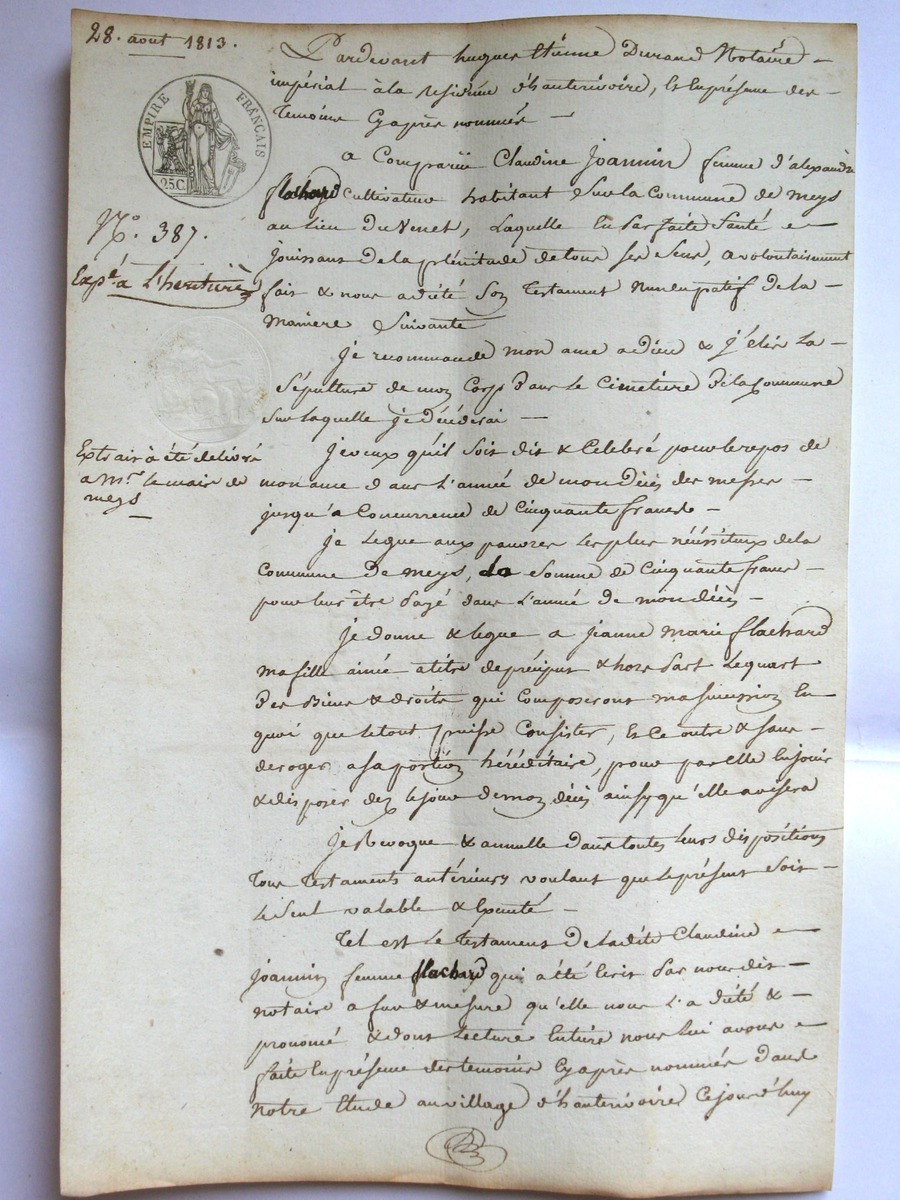 28. aout 1813.
EMPIRE FRANÇAIS
25 C.
N.º 387.
Expé. a L'héritière
Extrait à été délivré
a Mr. le maire de
meys
Pardevant hugues Etienne Durand Notaire
impérial à la résidence d'hauterivoire, Et En présence des
Temoins Cyaprès nommés
a Comparüe Claudine Joannin femme d'alexandre
flachard cultivateur habitant Sur la Commune de meys
au Lieu Du Venet, Laquelle En parfaite Santé
Jouissant De la plénitude de tous Ses Sens, a volontairement
fait & nous a dicté Son Testament Nuncupatif De la
Maniere Suivante
Je recommande mon ame a dieu & J'élis La
Sépulture de mon Corps Dans Le Cimetière De la Commune
Sur Laquelle je Décéderai
Je veux qu'il Soit dit & Célébré pour le repos de
mon ame dans L'année de mon Décès des messes
jusqu'a Concurrence de Cinquante francs
Je Legue aux pauvres Les plus nécéssiteux de la
Commune De meys, la Somme de Cinquante francs
pour leur être Payé dans L'année de mon décès
Je donne & legue a Jeanne Marie flachard
ma fille ainée a titre de préciput & hors Part Le quart
Des Biens & droits qui Composeront ma Succession En
quoi que le tout puisse Consister, Et Ce outre & sans
deroger a sa portion héréditaire, pour par elle En jouir
& disposer dez le jour de mon décès ainsy qu'elle avisera
Je Révoque & annulle Dans toutes Leurs dispositions
Tous Testaments antérieurs voulant que Le présent Soit
Le Seul valable & Exécuté
Tel est Le Testament De Ladite Claudine
Joannin femme flachard qui a été Ecrit Par nous dit
notaire a fur & mesure qu'elle nous L'a dicté &
prononcé & dont Lecture Entière nous Lui avons
faite En présence des temoins Cyaprès nommés Dans
Notre Etude au village d'hauterivoire Cejourd'huy